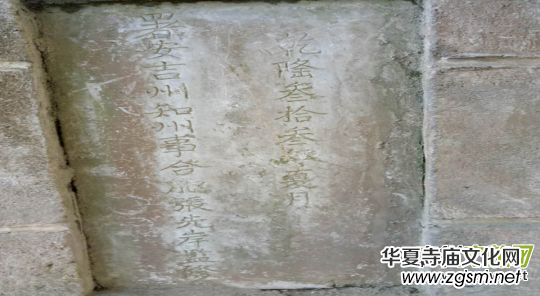 乾隆叁拾叁年夏月
署安吉州知州事張先岸監修
华夏寺庙文化网
www.zgsm.net